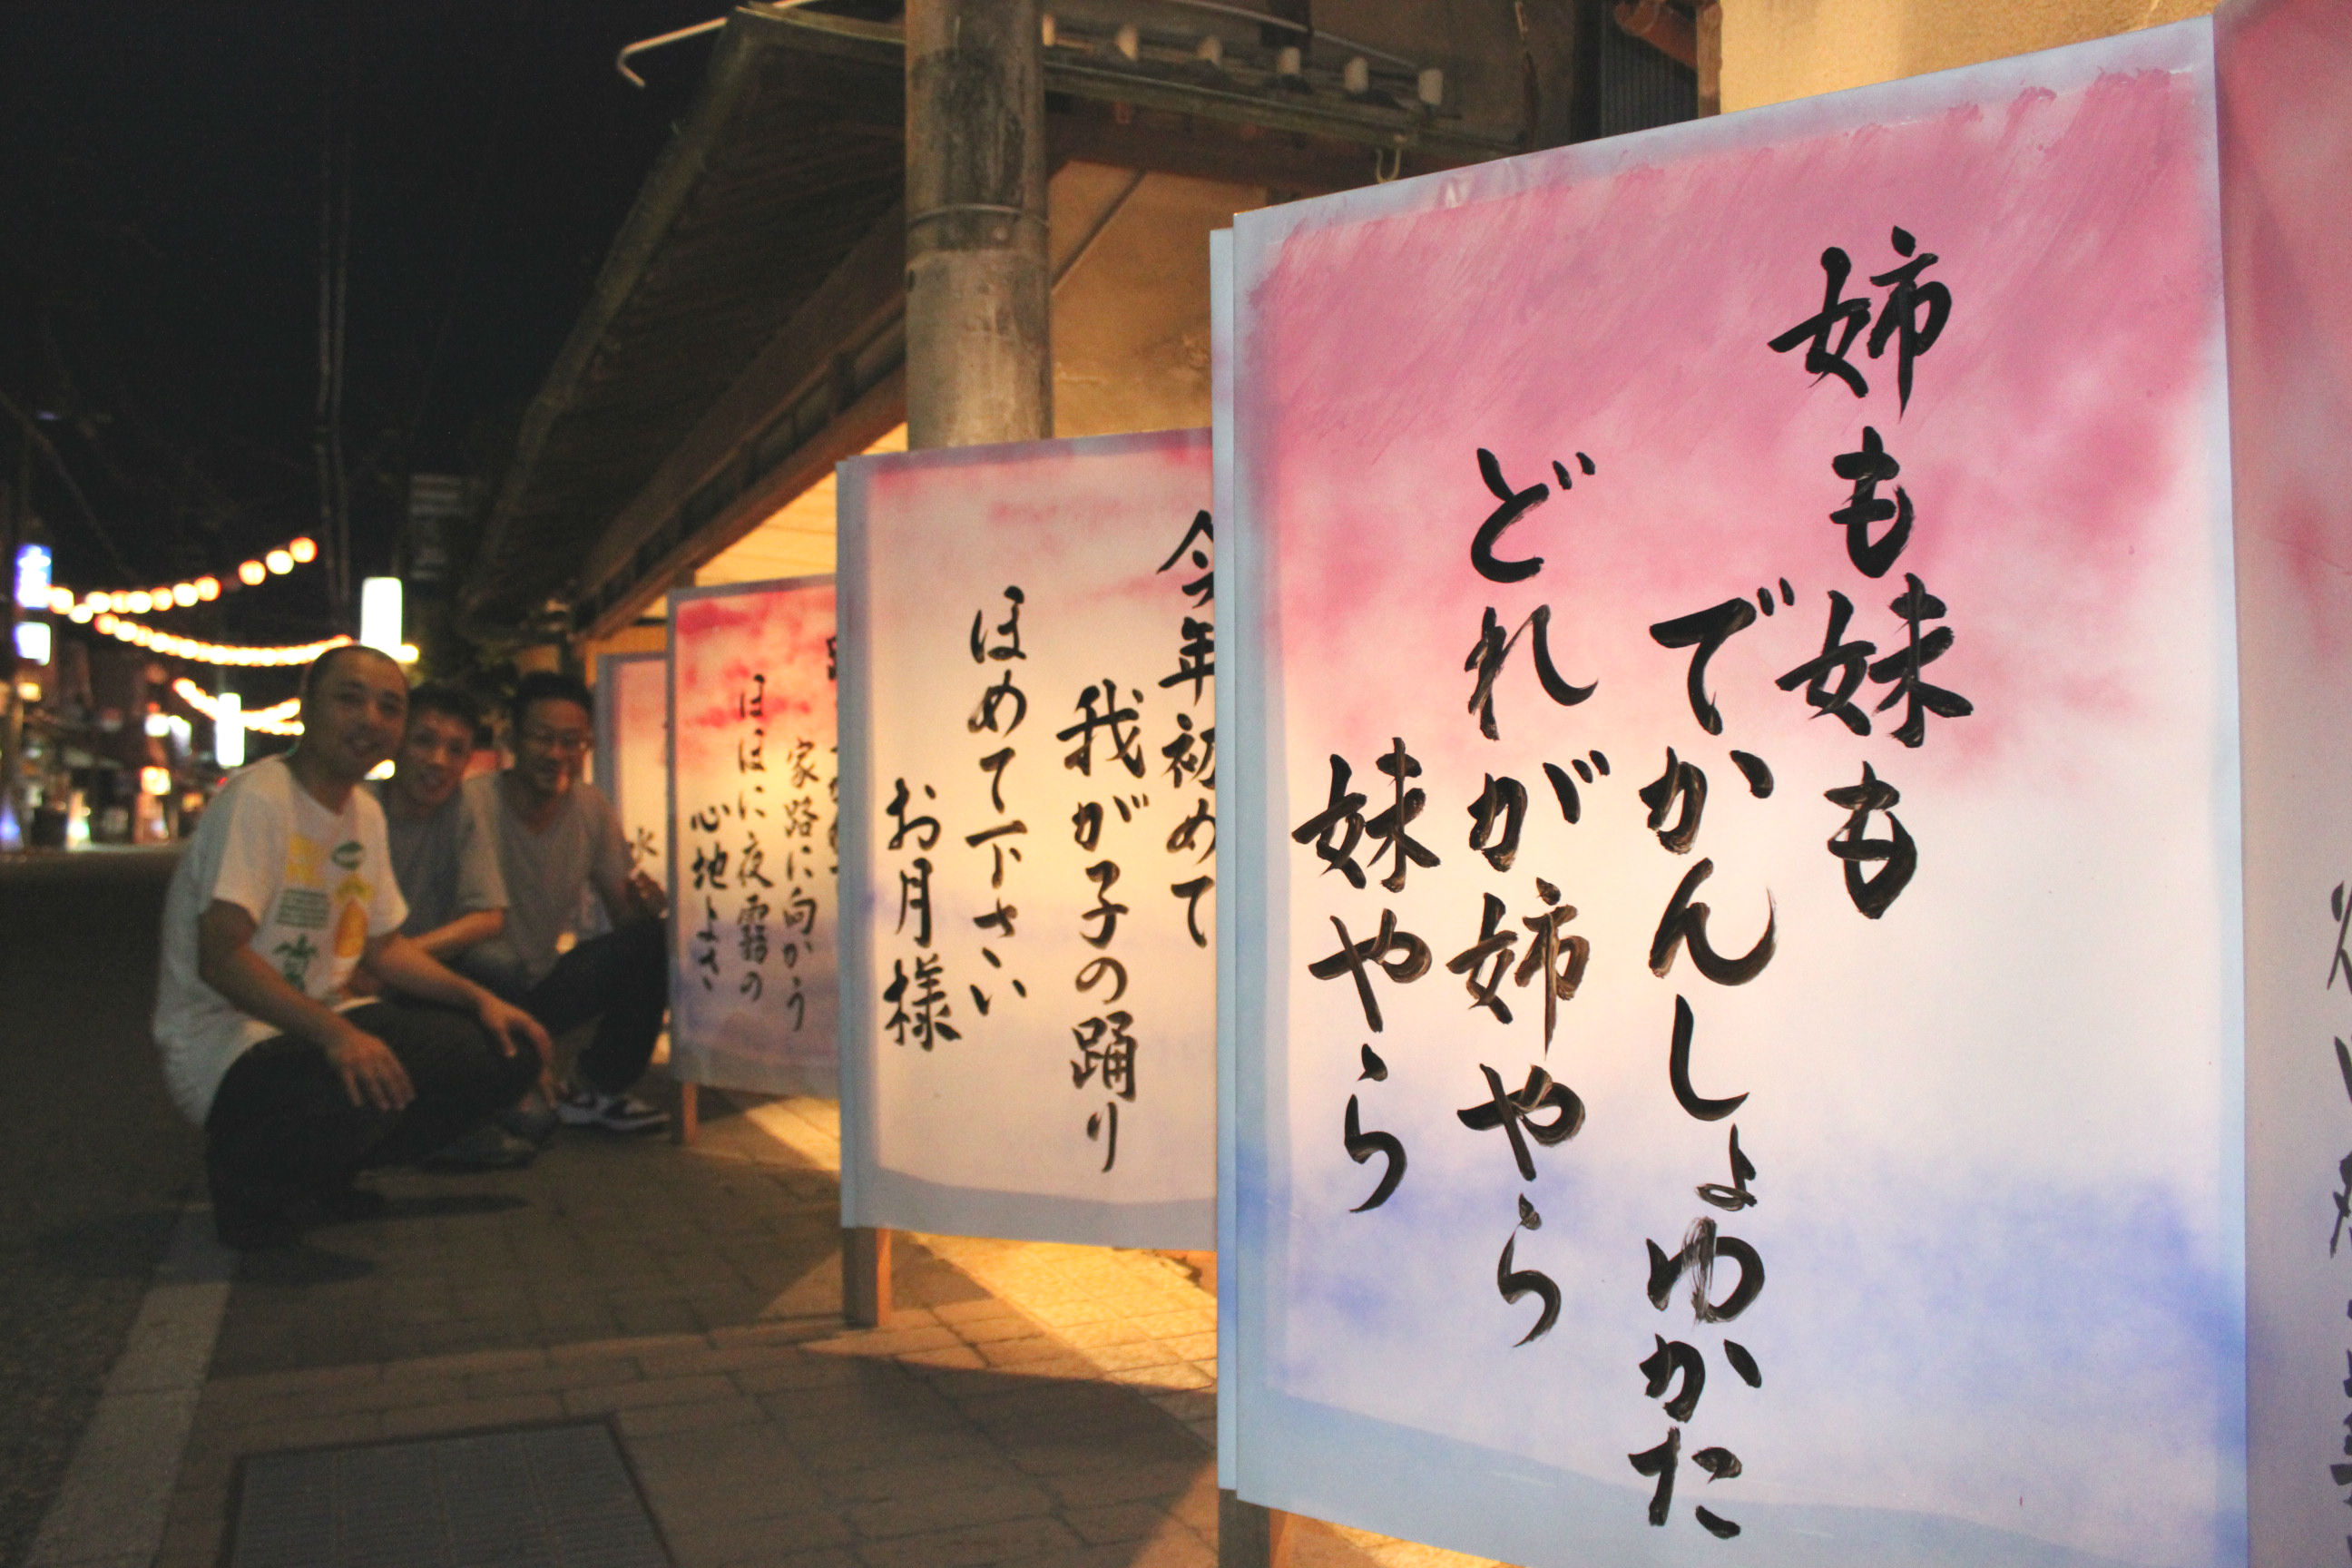 姉も妹も
でかんしょゆかた
どれが姉やら
妹やら
今年初めて
我が子の踊り
ほめて下さい
お月様
家路に向かう
ほほに夜霧の
心地よさ